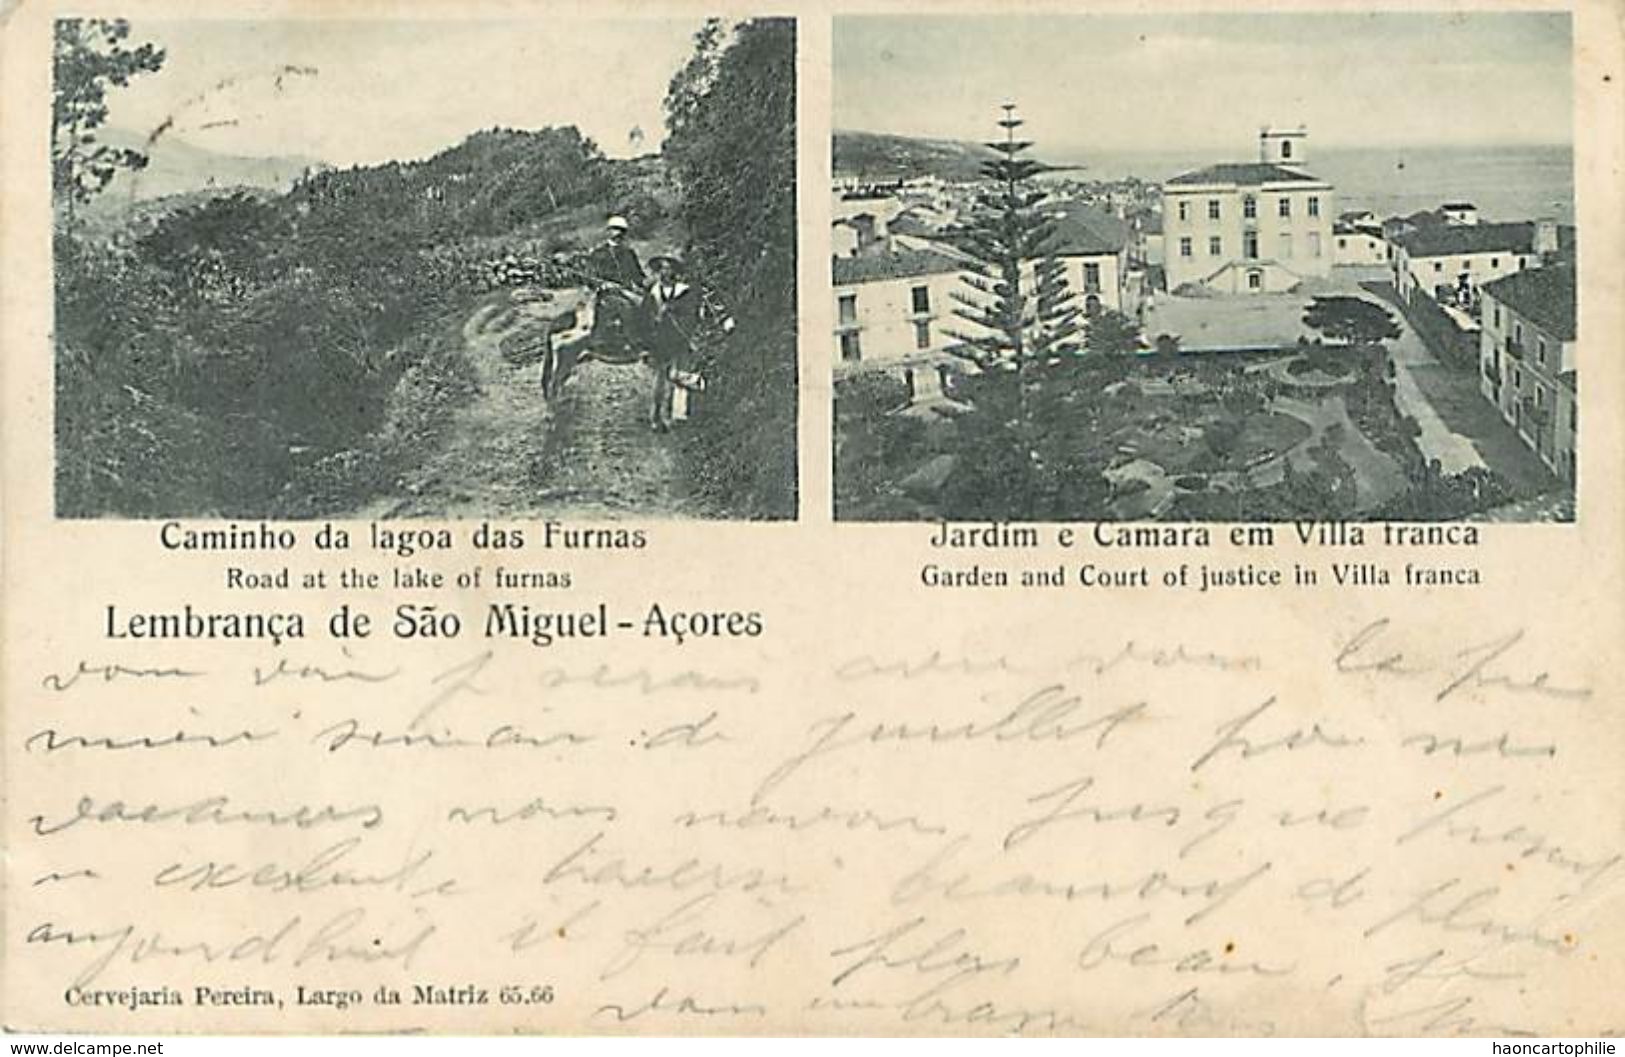 Caminho da lagoa das Furnas
Road at the lake of furnas
Jardim e Camara em Villa franca
Garden and Court of justice in Villa franca
Lembrança de São Miguel - Açores
vous voir je serais vous la pre
de juillet
vacances nous jusque
beaucoup de pluie
aujourdhuit il fait plus beau, je
vous embrasse
Cervejaria Pereira, Largo da Matriz 65.66
www.delcampe.net
haoncartophilie